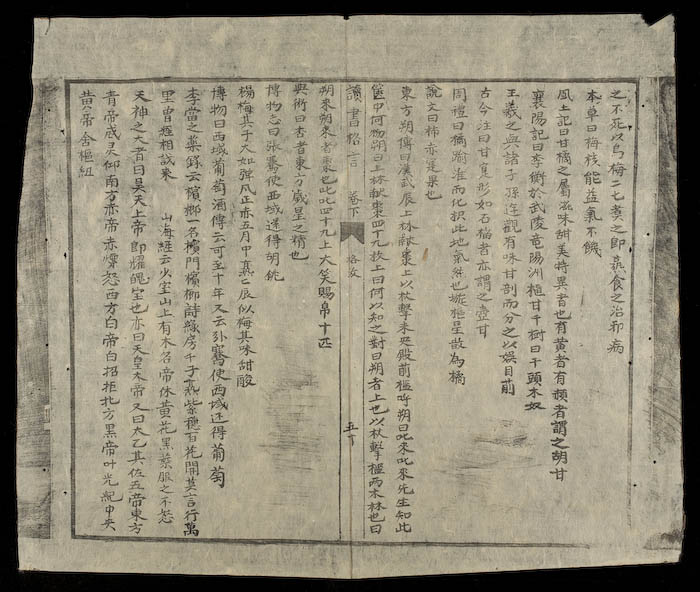 之不死以烏梅二七煑之即蒸食之治邪病
本草曰梅核能益氣不饑
風土記曰甘橘之屬滋味甜美特異者也有黃者有赬者謂之胡甘
襄陽記曰李衡於武陵竜陽洲植甘千樹曰千頭木奴
王羲之與諸子孫遊觀有味甘剖而分之以娛目前
古今注曰甘實形如石榴者亦謂之壺甘
周禮曰橘踰淮而化枳此地氣然也璇樞星散為橘
說文曰柿赤寔果也
東方朔傳曰漢武辰上林献棗上以杖擊未央殿前檻呼朔曰叱來叱來先生知此
篋中何物朔曰上林献棗四十九枚上曰何以知之對曰朔者上也以杖擊檻兩木林也曰
讀書格言 卷下 格致 五十
朔來朔來者棗也叱叱四十九上大笑賜帛十匹
典術曰杏者東方歲星之精也
博物志曰張騫使西域還得胡桃
楊梅其子大如彈丸正赤五月中熟辰似梅其味甜酸
博物曰西域葡萄酒傳云可至十年又云張騫使西域还得葡萄
李當之藥錄云檳榔一名檳門檳榔詩綠房千子熟紫穗百花開莫言行萬
里曾經相識來 山海經云少室山上有木名帝休黃花黑葉服之不怒
天神之大者曰昊天上帝即耀魄宝也亦曰天皇大帝又曰太乙其佐五帝東方
青帝威灵仰南方赤帝赤熛怒西方白帝白招拒北方黑帝叶光紀中央
黃帝含樞紐